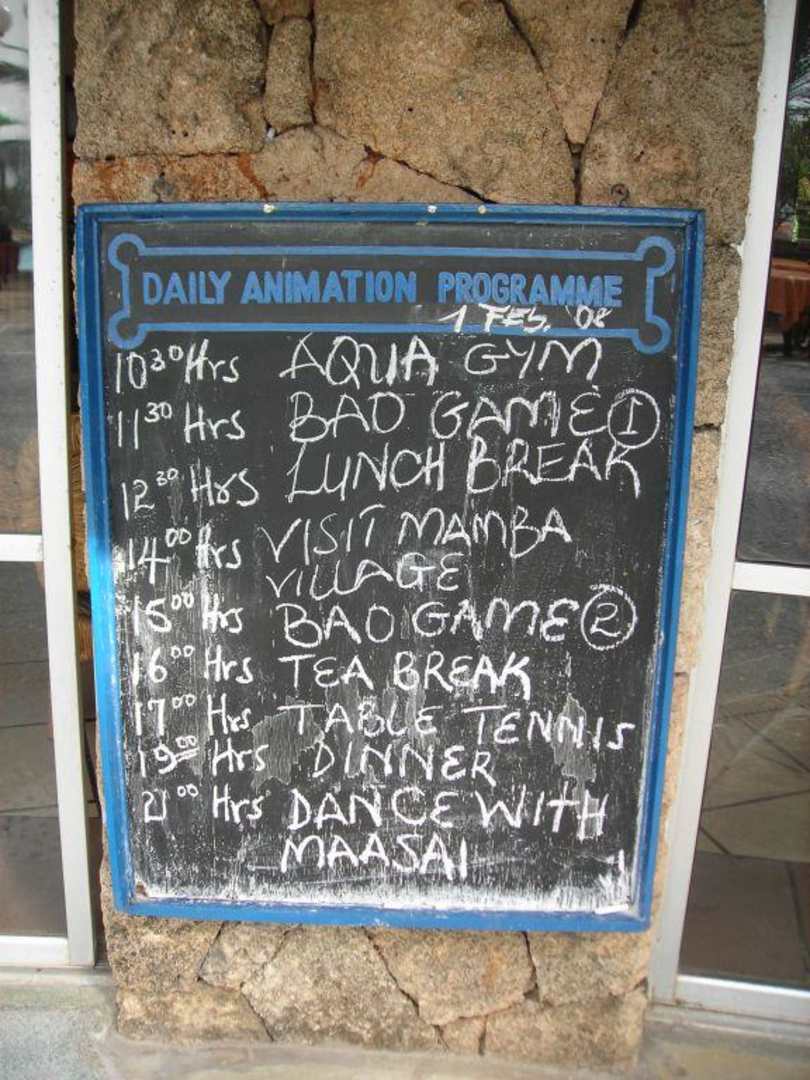 DAILY ANIMATION PROGRAMME
1 FEB. '08
10 30 Hrs AQUA GYM
11 30 Hrs BAO GAME 1
12 30 Hrs LUNCH BREAK
14 00 Hrs VISIT MAMBA
VILLAGE
15 00 Hrs BAO GAME 2
16 00 Hrs TEA BREAK
17 00 Hrs TABLE TENNIS
19 00 Hrs DINNER
21 00 Hrs DANCE WITH
MAASAI